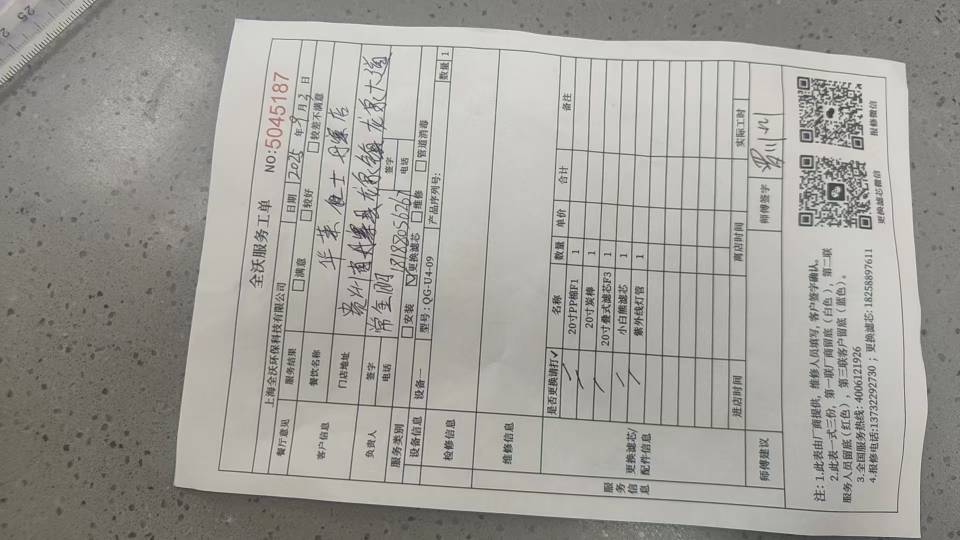 全沃服务工单
NO:5045187
上海全沃环保科技有限公司 日期 2025 年 9 月 2 日
餐厅意见 服务结果 满意 较好 较差不满意
客户信息 餐饮名称 华莱士 丹寨店
门店地址 贵州省丹寨县龙泉镇龙泉大道
负责人 签字 签字
电话 18188056767 电话
服务类别 安装 更换滤芯 维修 管道消毒
设备信息 设备一 型号:QG-U4-09 产品序列号: 数量 1
检修信息
维修信息
服务信息 更换滤芯/配件信息 是否更换请打✓ 名称 数量 单价 合计 备注
20寸PP棉F1 1
20寸炭棒 1
20寸叠式滤芯F3 1
小白熊滤芯 1
紫外线灯管 1
进店时间 离店时间 实际工时
师傅建议 师傅签字
注: 1.此表由厂商提供, 维修人员填写, 客户签字确认。
2.此表一式三份, 第一联厂商留底 (白色), 第二联
服务人员留底 (红色), 第三联客户留底 (蓝色)。
3.全国服务热线: 4006121926
4.报修电话:13732292730 ; 更换滤芯: 18258897611
更换滤芯微信 报修微信
25